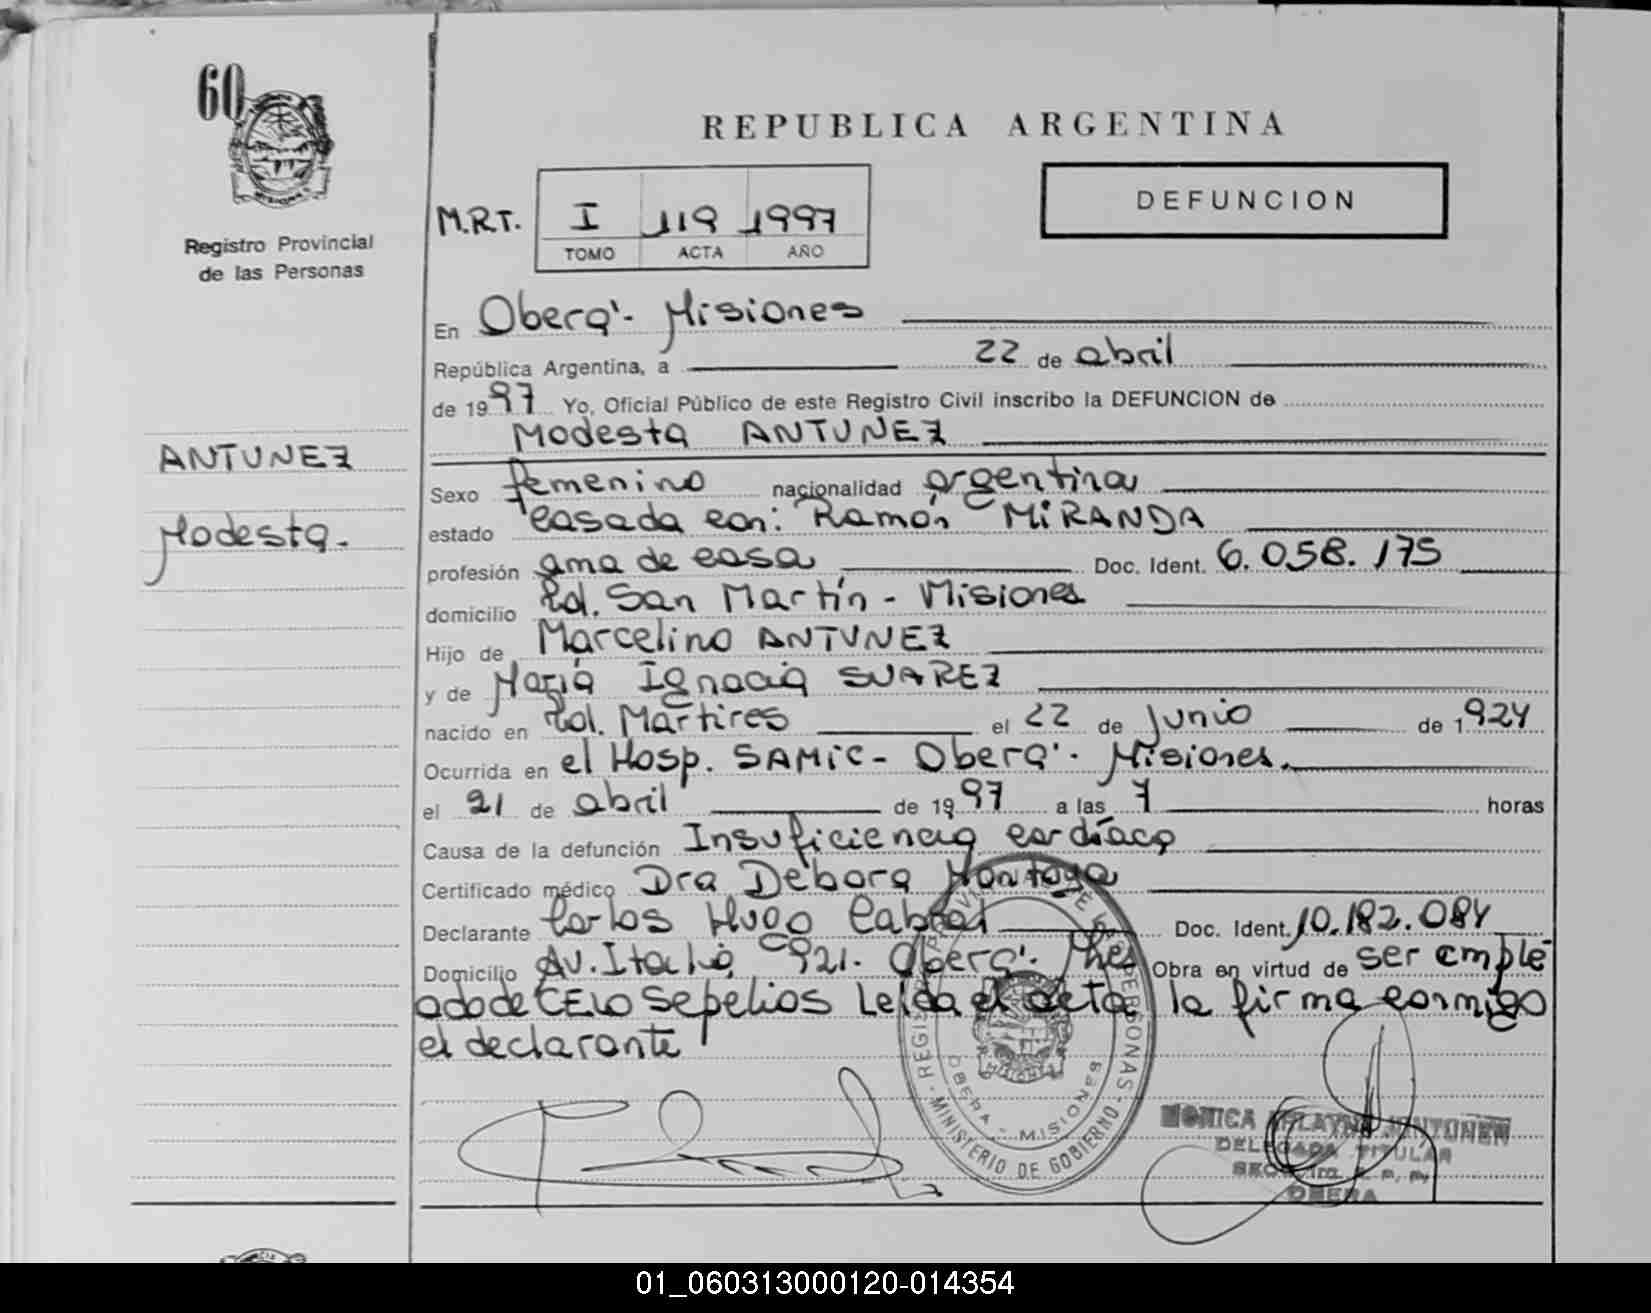 60
Registro Provincial
de las Personas
ANTUNEZ
Modesta.
REPUBLICA ARGENTINA
DEFUNCION
M.R.T. I 119 1997
TOMO ACTA AÑO
En Oberá. Misiones
República Argentina, a 22 de abril
de 1997 Yo, Oficial Público de este Registro Civil inscribo la DEFUNCION de
Modesta ANTUNEZ
Sexo femenino nacionalidad argentina
estado casada con: Ramón MIRANDA
profesión ama de casa Doc. Ident. 6.058.175
domicilio Pol. San Martín - Misiones
Hijo de Marcelino ANTUNEZ
y de María Ignacia SUAREZ
nacido en Pol. Martires el 22 de Junio de 1924
Ocurrida en el Hosp. SAMIC - Oberá. Misiones.
el 21 de abril de 1997 a las 7 horas
Causa de la defunción Insuficiencia cardíaca
Certificado médico Dra Debora Montoya
Declarante Carlos Hugo Cabral Doc. Ident. 10.182.084
Domicilio Av. Italia 921. Oberá. Mnes Obra en virtud de ser emple
ado de CELO Sepelios Leída el acta la firma conmigo
el declarante
REGISTRO PROVINCIAL DE LAS PERSONAS - MINISTERIO DE GOBIERNO -
OBERA - MISIONES
MONICA
DELEGADA TITULAR
OBERA
01_060313000120-014354